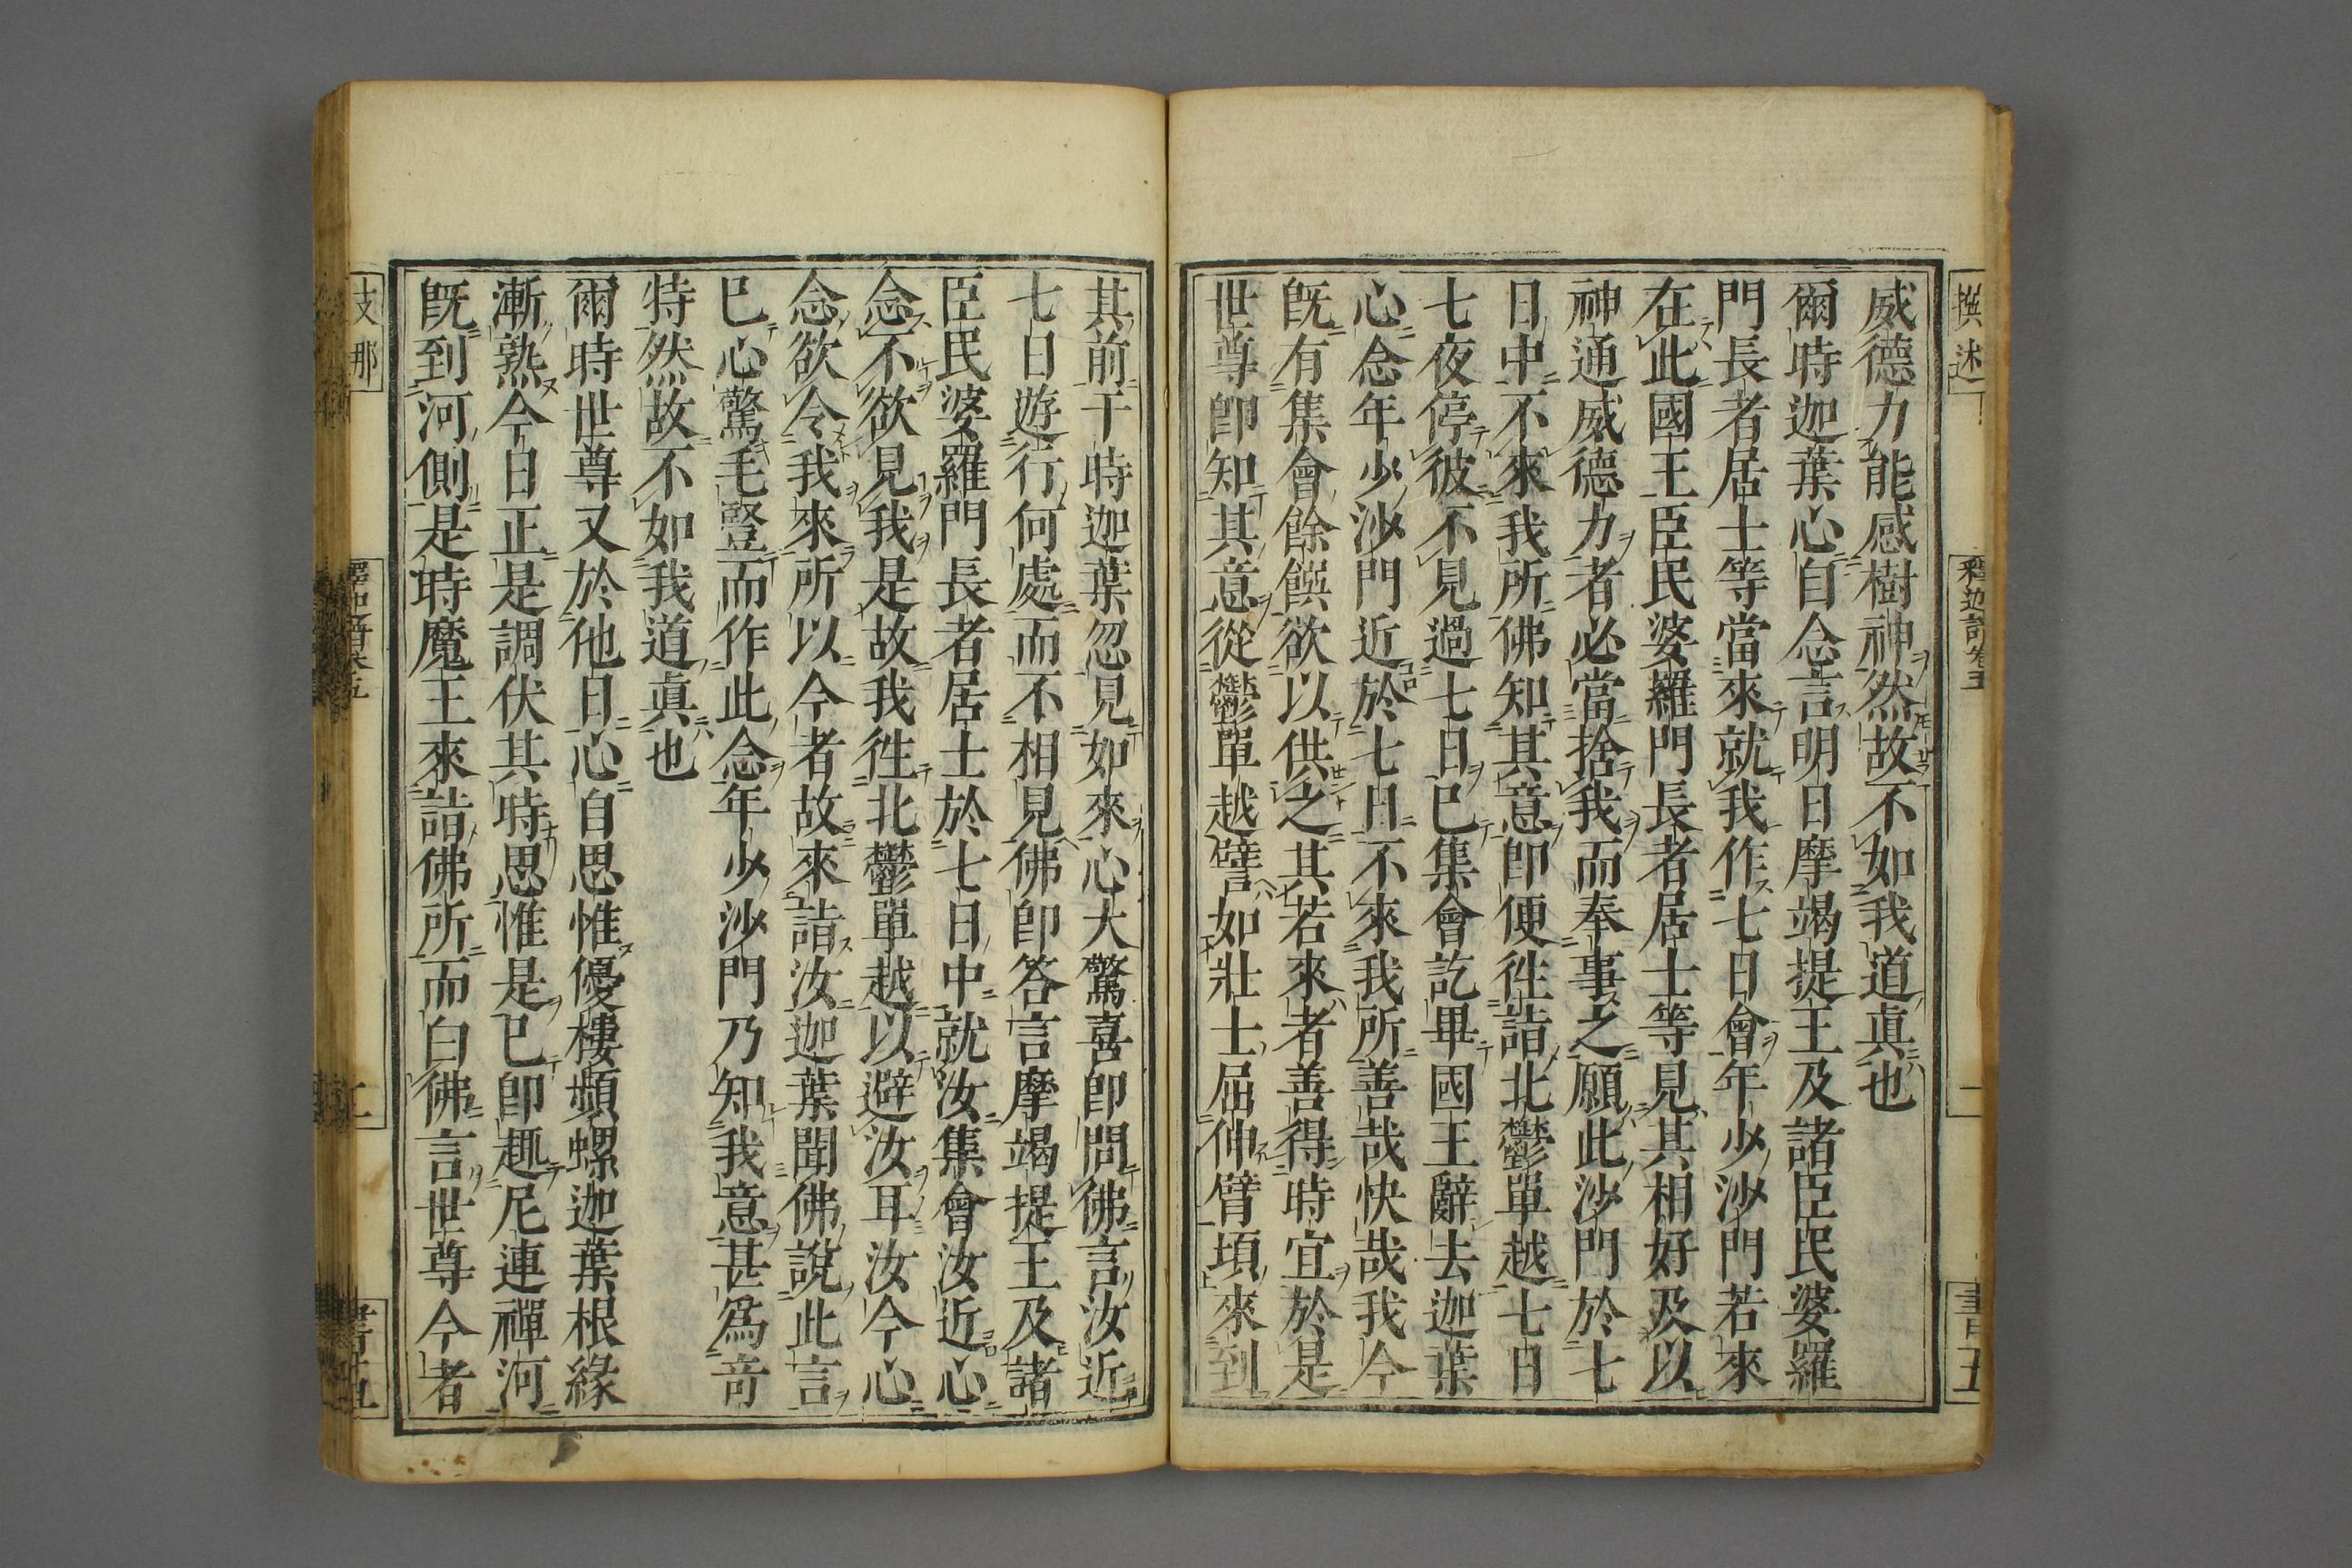 撰述
釋迦譜卷五
書五
威德力能感樹神然故不如我道真也
爾時迦葉心自念言明日摩竭提王及諸臣民婆羅
門長者居士等當來就我作七日會年少沙門若來
在此國王臣民婆羅門長者居士等見其相好及以
神通威德力者必當捨我而奉事之願此沙門於七
日中不來我所佛知其意即便徃詣北鬱單越七日
七夜停彼不見過七日已集會訖畢國王辭去迦葉
心念年少沙門近於七日不來我所善哉快哉我今
既有集會餘饌欲以供之其若來者善得時宜於是
世尊即知其意從鬱單越譬如壯士屈伸臂頃來到
其前于時迦葉忽見如來心大驚喜即問佛言汝近
七日遊行何處而不相見佛即答言摩竭提王及諸
臣民婆羅門長者居士於七日中就汝集會汝近心
念不欲見我是故我徃北鬱單越以避汝耳汝今心
念欲令我來所以今者故來詣汝迦葉聞佛說此言
已心驚毛豎而作此念年少沙門乃知我意甚為奇
特然故不如我道真也
爾時世尊又於他日心自思惟優樓頻螺迦葉根緣
漸熟今日正是調伏其時思惟是已即趣尼連禪河
既到河側是時魔王來詣佛所而白佛言世尊今者
支那
書五